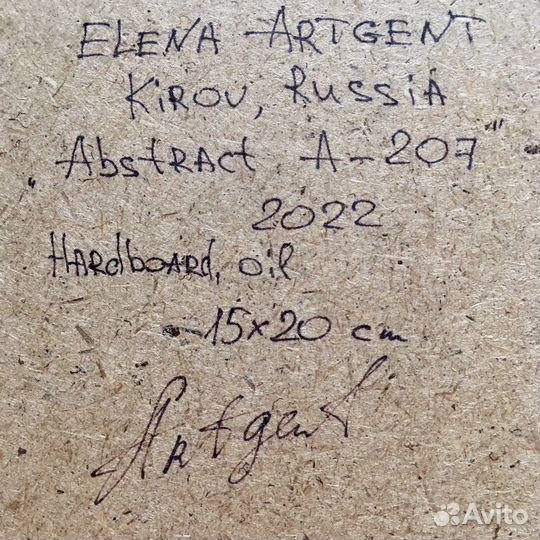 ELENA ARTGENT
KIROV, RUSSIA
„Abstract A-207"
2022
Hardboard, oil
15x20 cm
Artgent
Avito